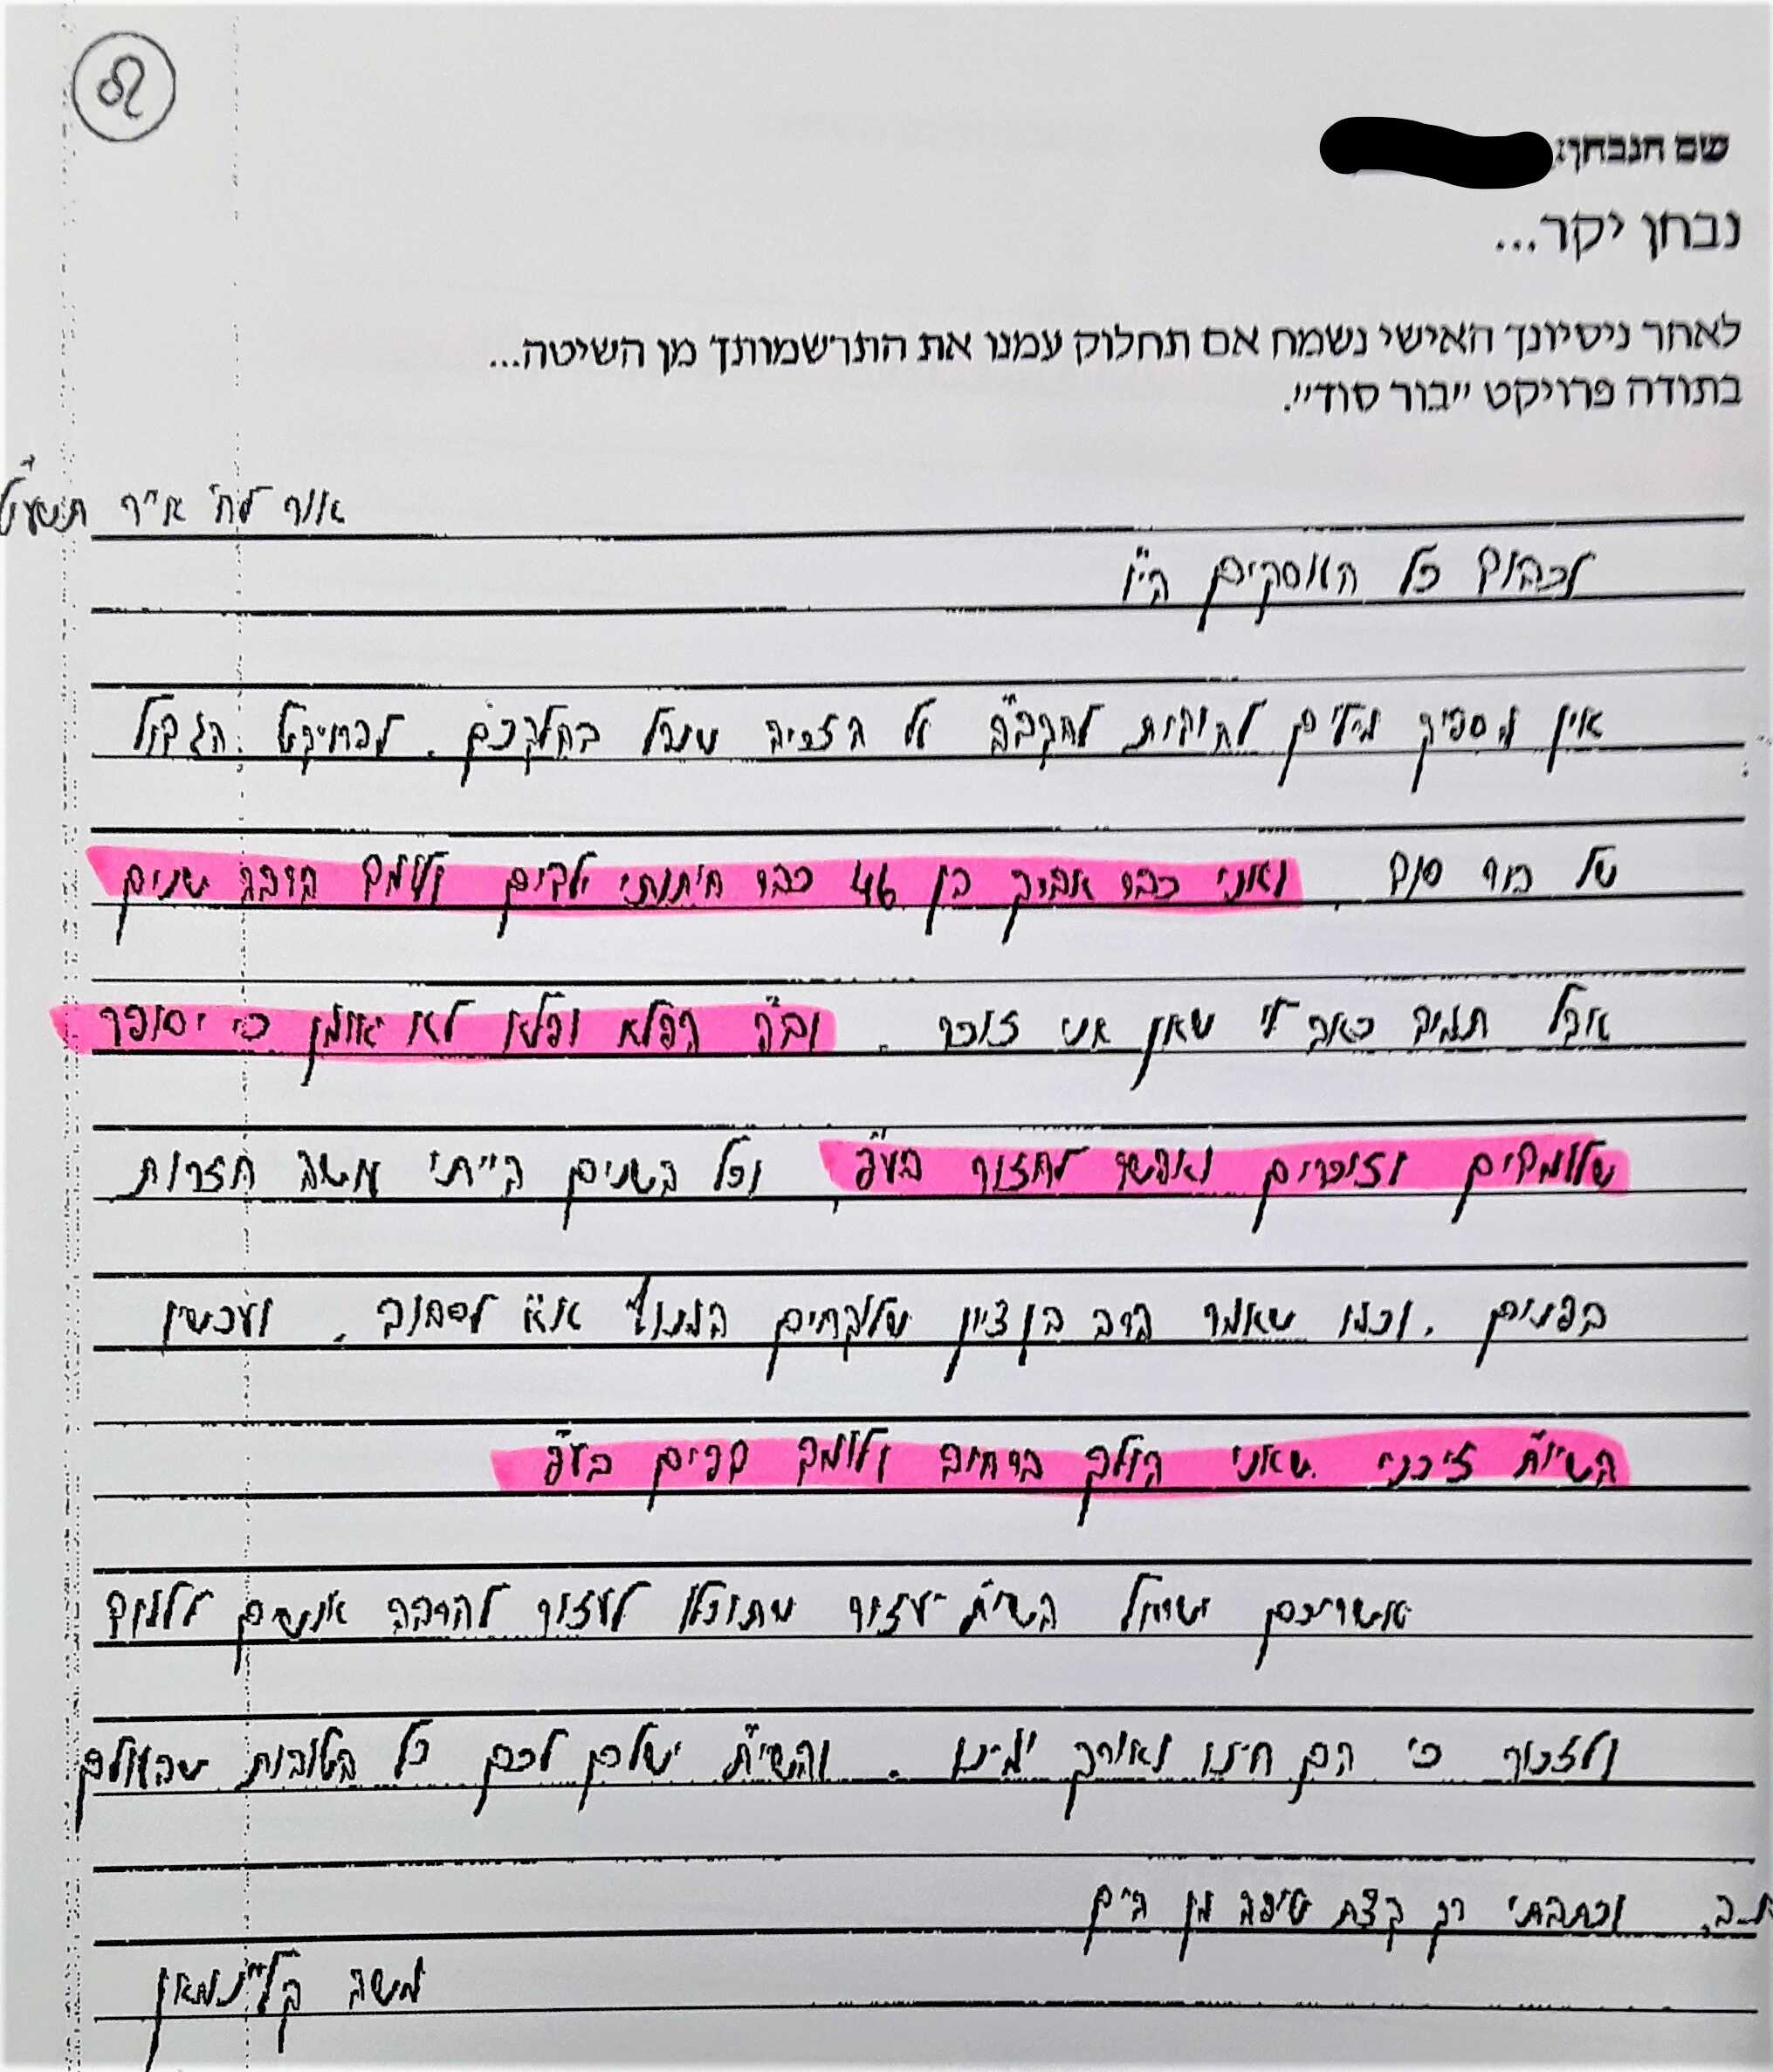 שם הנבחן:
נבחן יקר...
לאחר ניסיונך האישי נשמח אם תחלוק עמנו את התרשמותך מן השיטה...
בתודה פרויקט "בור סוד".
אור לח' אייר תשע"ט
לכבוד כל העוסקים הי"ו
אין מספיק מילים להודות להקב"ה על הזכיה שנפל בחלקכם. לפרויקט הגדול
של בור סוד. ואני כבר אברך בן 46 כבר חיתנתי ילדים ולומד הרבה שנים
אבל תמיד כאב לי שאין אני זוכר. וב"ה הפלא ופלא לא יאומן כי יסופר
שלומדים וזוכרים ואפשר לחזור בע"פ, וכל השנים הייתי עושה חזרות
בפנים. וכמו שאמר הרב בן ציון שלוקחים המנוף א"א לסחוב. ועכשיו
השי"ת זיכני שאני הולך ברחוב ולומד דפים בע"פ
אשריכם ישראל השי"ת יעזור שתוכלו לעזור להרבה אנשים ללמוד
ולזכור כי הם חיינו ואורך ימינו. והשי"ת ישלם לכם כל הטובות שבעולם
וכתבתי רק קצת טיפה מן הים
משה קליינמאן